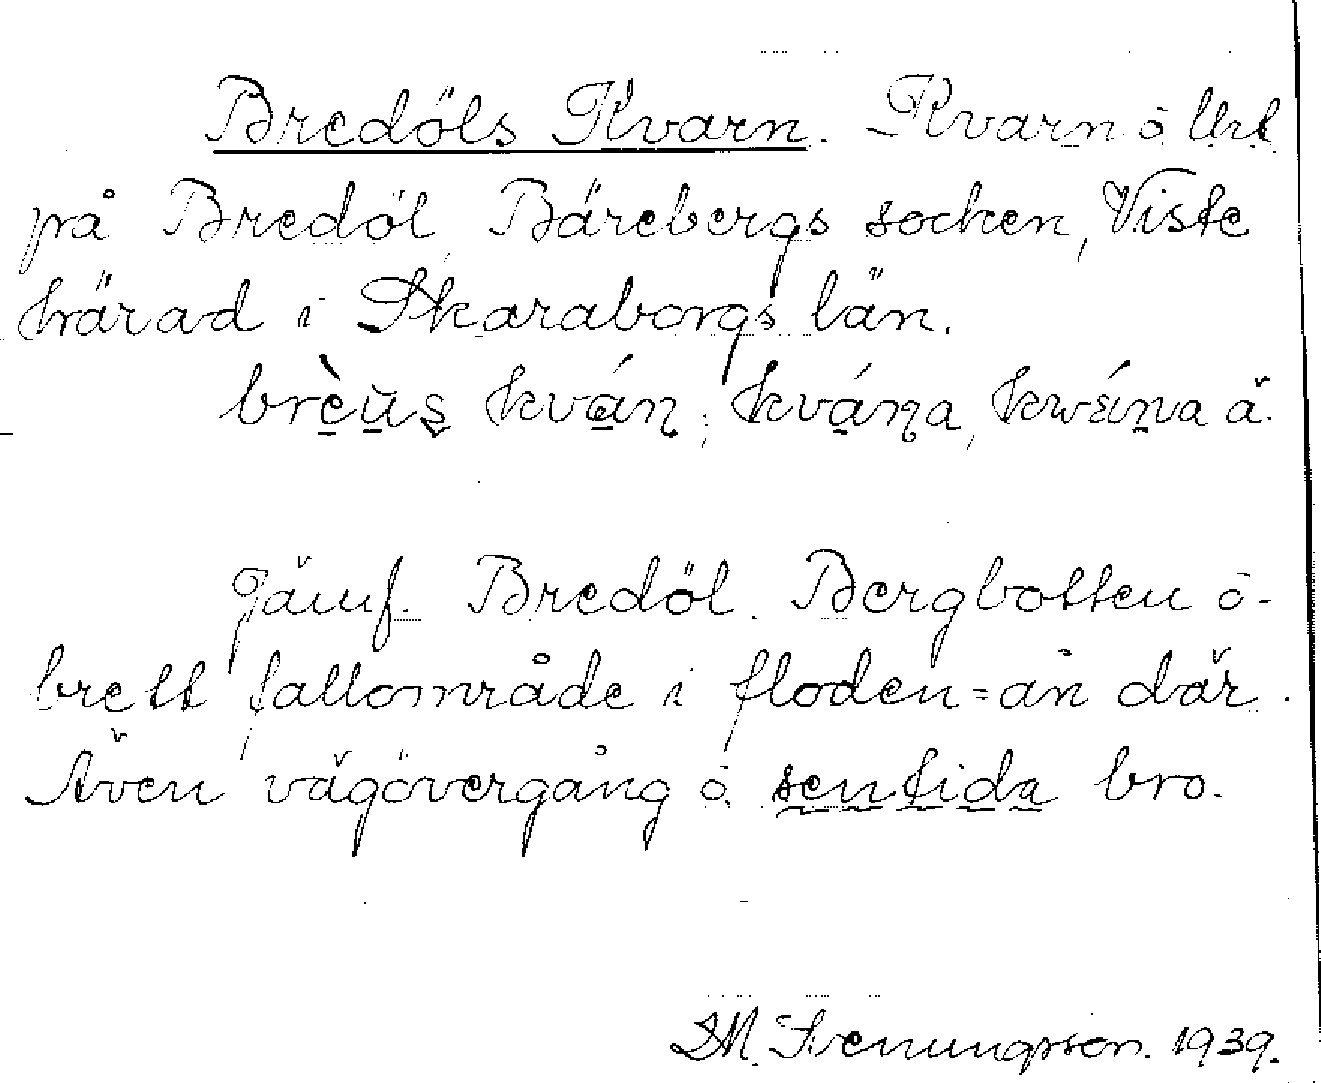 Bredöls Kvarn. Kvarn o Urt
på Bredöl, Bärebergs socken, Viste
härad i Skaraborgs län.
brèus kván; kvána, kwána ä.
Jämf. Bredöl. Bergbotten o-
brett fallområde i floden=ån där.
Även vägövergång o. sentida bro.
DM. Svenungsson. 1939.